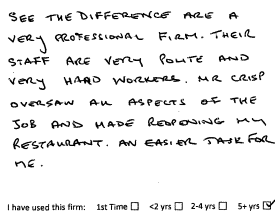 SEE THE DIFFERENCE ARE A
VERY PROFESSIONAL FIRM. THEIR
STAFF ARE VERY POLITE AND
VERY HARD WORKERS. MR CRISP
OVERSAW ALL ASPECTS OF THE
JOB AND MADE REOPENING MY
RESTAURANT. AN EASIER TASK FOR
ME.
I have used this firm: 1st Time ☐ <2 yrs ☐ 2-4 yrs ☐ 5+ yrs ☑